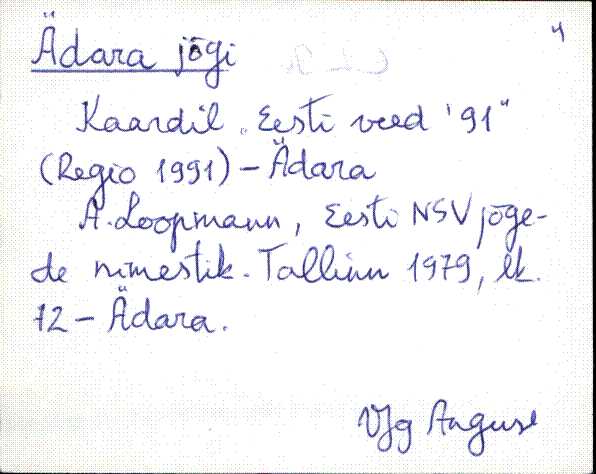 4
Ädara jõgi
Kaardil „Eesti veed '91"
(Regio 1991) - Ädara
A. Loopmann, Eesti NSV jõge-
de nimestik. Tallinn 1979, lk.
72 - Ädara.